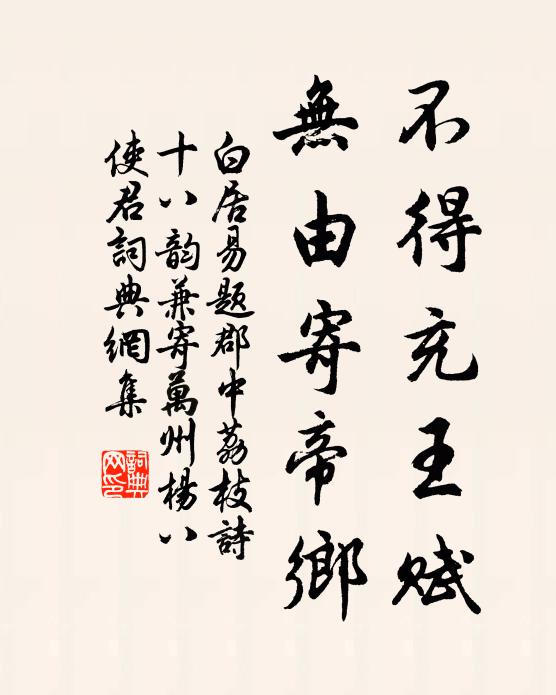 不得充王賦
無由寄帝鄉
白居易題郡中荔枝詩
十八韵兼寄萬州楊八
使君詞典網集
詞典网印